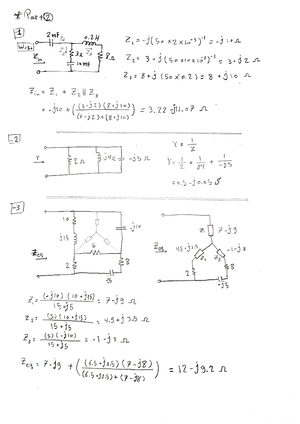 * Part (2)
-1
2mF
0.2H
3Ω
8Ω
10mF
Zin
Z₁ = -j(50×2×10⁻³)⁻¹ = -j10Ω
Z₂ = 3-j(50×10×10⁻³)⁻¹ = 3-j2Ω
Z₃ = 8+j(50×0.2) = 8+j10Ω
Zin = Z₁ + Z₂ || Z₃
= -j10 + ((3-j2)(8+j10) / (3-j2)+(8+j10)) = 3.22-j11.07Ω
-2
Y
2Ω
j4Ω
-j5Ω
Y = 1/2
Y = 1/2 + 1/j4 + 1/-j5
= 0.5-j0.05
-3
10
-j10
j15
5
2
8
Zeq
Z₁ 7-j9
4.5+j3.5
-1-j3
Z₂
Z₃
Zeq
2
8
Z₁ = (-j10)(10+j15) / 15+j5 = 7-j9Ω
Z₂ = (5)(10+j15) / 15+j5 = 4.5+j3.5Ω
Z₃ = (5)(-j10) / 15+j5 = -1-j3Ω
Zeq = 7-j9 + ((6.5+j3.5)(7-j8) / (6.5+j3.5)+(7-j8)) = 12-j9.2Ω